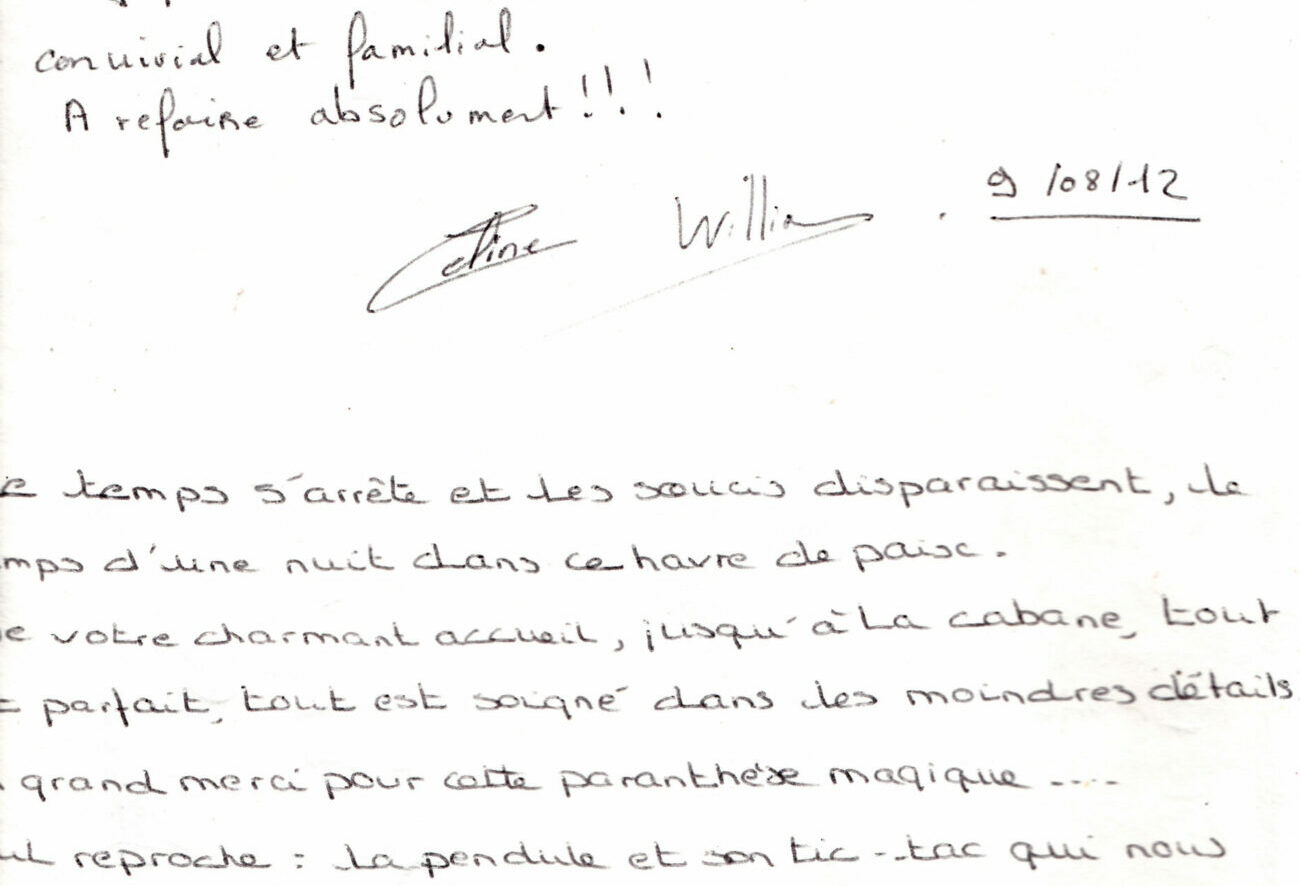 convivial et familial.
A refaire absolument !!!
Celine William. 9/08/12
e temps s'arrête et les soucis disparaissent, le
mps d'une nuit dans ce havre de paix.
e votre charmant accueil, jusqu'à la cabane, tout
t parfait, tout est soigné dans les moindres détails
grand merci pour cette paranthèse magique ....
ul reproche : la pendule et son tic-tac qui nous